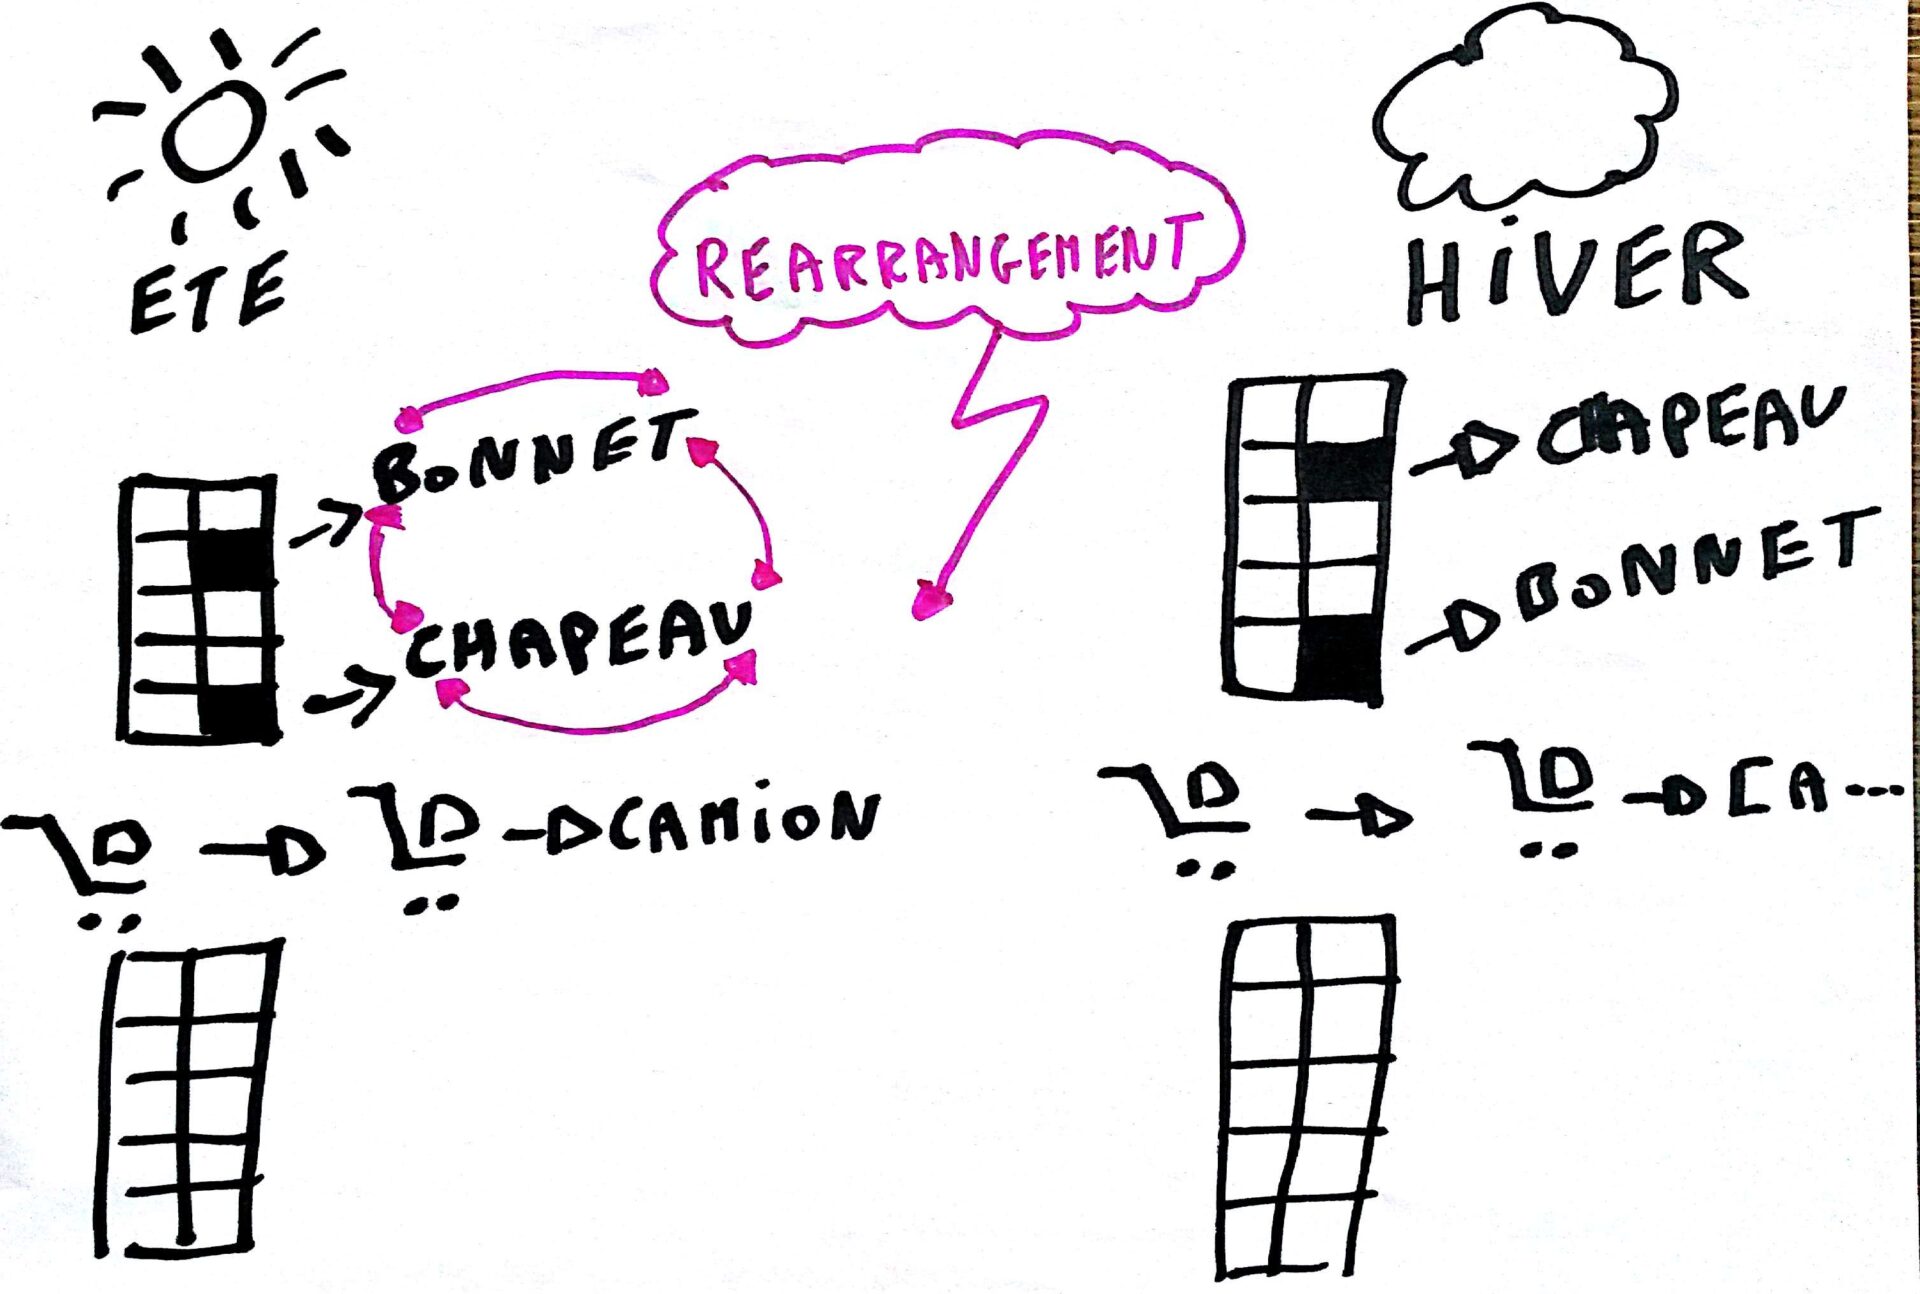 ETE
REARRANGEMENT
HiVER
BONNET
CHAPEAU
CAMiON
CHAPEAU
BONNET
CA...